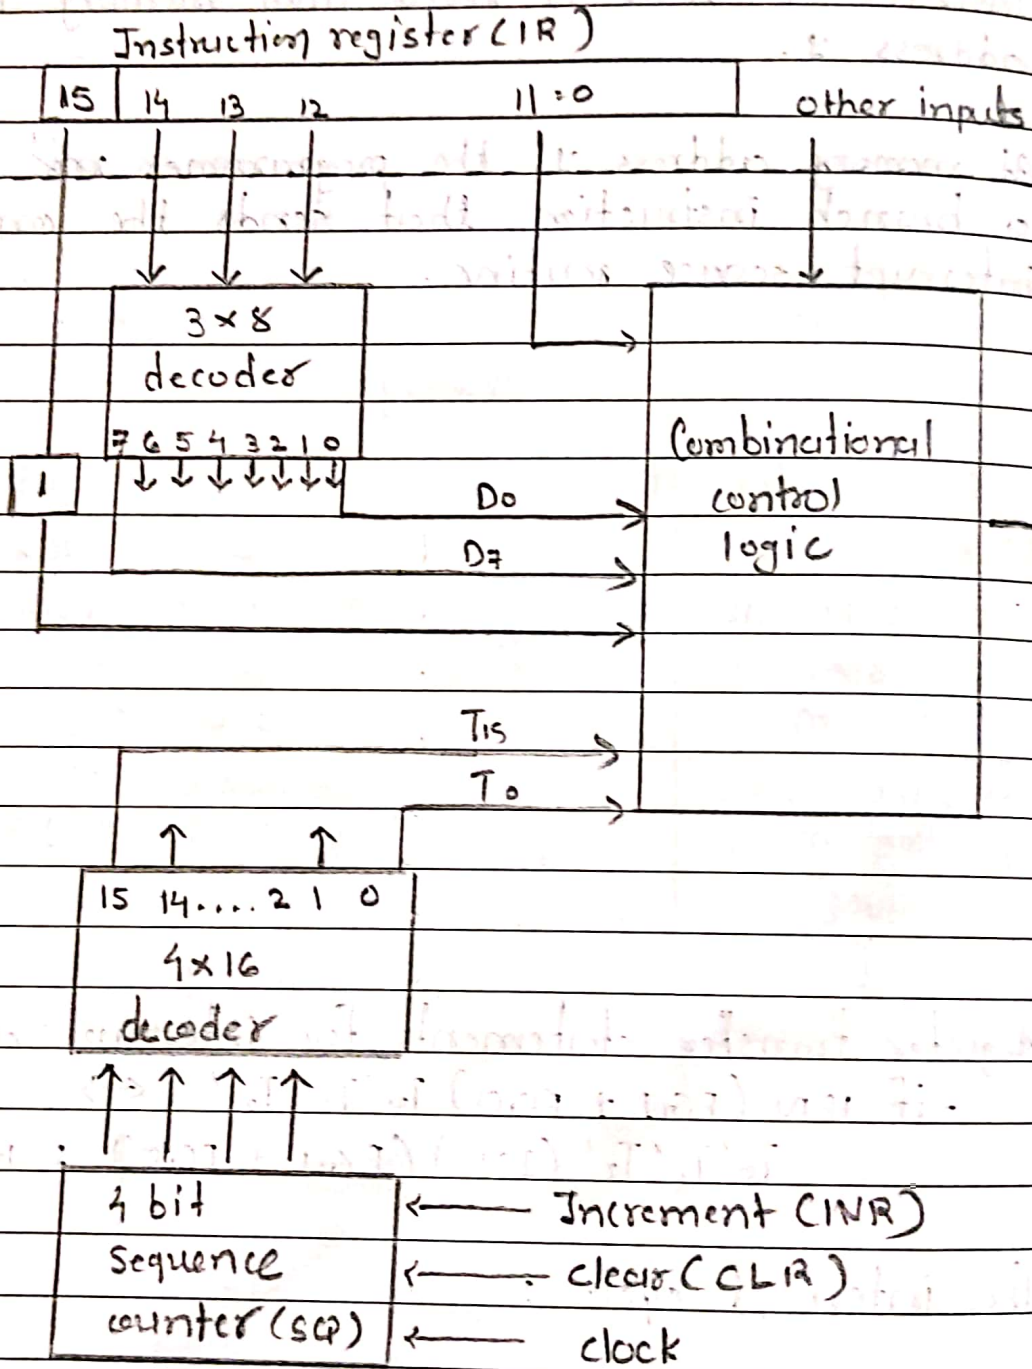 Instruction register (IR)
15 14 13 12 11:0 other inputs
3 x 8
decoder
7 6 5 4 3 2 1 0
Combinational
control
logic
1
D0
D7
T15
T0
15 14.... 2 1 0
4x16
decoder
4 bit
sequence
counter (SQ)
Increment (INR)
clear. (CLR)
clock